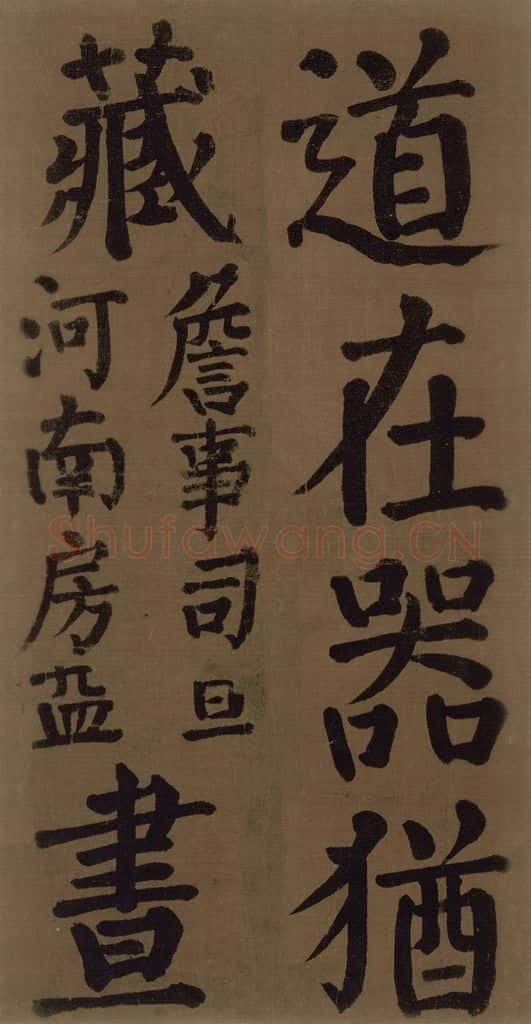 道在器猶
藏
詹事司旦
河南房
晝
Shufawang.CN